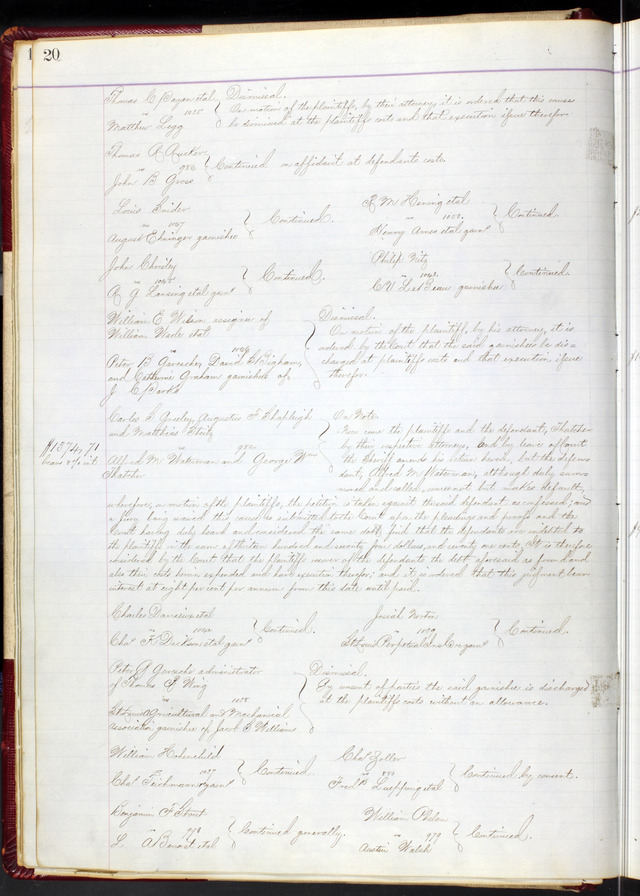 20
Thomas C. et al
vs 1025
Matthew Legg
Dismissal.
On motion of the plaintiffs, by their attorney it is ordered that this cause
be dismissed at the plaintiffs costs and that execution issue therefor
Thomas A Rucker
vs 986
John B Gross
Continued on affidavit at defendants costs
Louis Snider
vs 1047
August Ehninger garnishee
Continued.
F. M. Hening et al
vs 1050
Henry Ames et al garn
Continued.
John Chorley
vs 1048
A. G. Lansing et al garn
Continued.
Philip
vs 1042
garnishee
Continued.
William E. Wilson assignee of
William Wade et al
vs 1054
Peter B Garesche, David Bigham,
and Catherine Graham garnishees of
J. C. Parks
Dismissal.
On motion of the plaintiff, by his attorney, it is
ordered by the Court that the said garnishees be dis-
charged at plaintiffs costs and that execution issue
therefor.
Carlos S. Greeley, Augustus F Shapleigh
and Matthias
vs 982
Alfred M. Waterman and George Wm
Thatcher
$1574,71
bears 8% int.
On Note
Now come the plaintiffs and the defendant, Thatcher
by their respective attorneys, and by leave of Court
the Sheriff amends his return herein, but the defen-
dant, Alfred M. Waterman, although duly sum-
moned and called, comes not but makes default;
wherefore, on motion of the plaintiffs, the petition is taken against the said defendant as confessed; and
a jury being waived this cause is submitted to the Court upon the pleadings and proofs and the
Court having duly heard and considered the same doth find that the defendants are indebted to
the plaintiffs in the sum of fifteen hundred and seventy four dollars and seventy one cents, it is therefore
considered by the Court that the plaintiffs recover of the defendants the debt aforesaid as found and
also their costs herein expended and have execution therefor; and it is ordered that this judgment bear
interest at eight per cent per annum from this date until paid.
Charles et al
vs
Chas K. Dickson et al garn
Continued.
Josiah
vs
St Louis Perpetual Ins Co garn
Continued.
Peter G Garesche administrator
of Thomas Wing
vs 1058
St Louis Agricultural and Mechanical
Association garnishee of Jacob William
Dismissal.
By consent of parties the said garnishee is discharged
at the plaintiffs costs without an allowance.
William
vs 1057
Chas Teichmann garn
Continued.
Chas Zoller
vs
Fred et al
Continued by consent.
Benjamin F Stout
vs 978
L. A Benoist et al
Continued generally.
William Phelan
vs 979
Austin Walsh
Continued.